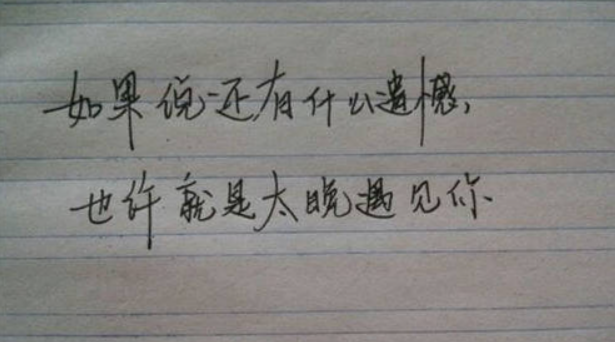 如果说还有什么遗憾,
也许就是太晚遇见你.